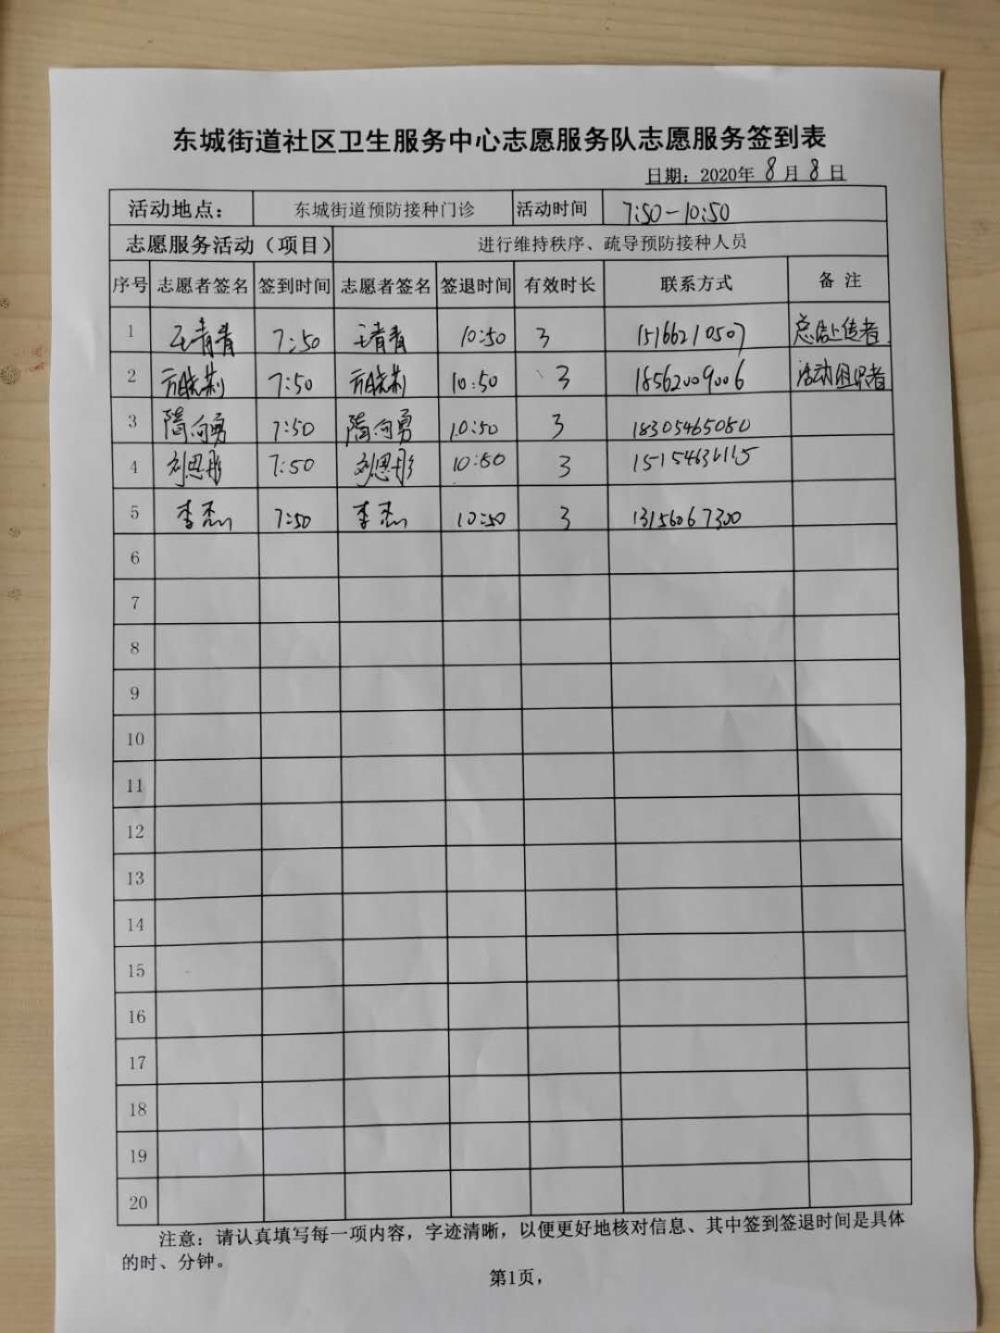 东城街道社区卫生服务中心志愿服务队志愿服务签到表
日期：2020年 8 月 8 日
活动地点： 东城街道预防接种门诊 活动时间 7:50-10:50
志愿服务活动（项目） 进行维持秩序、疏导预防接种人员
序号 志愿者签名 签到时间 志愿者签名 签退时间 有效时长 联系方式 备 注
1 王青青 7:50 王青青 10:50 3 15166210507 总结上传者
2 7:50 10:50 3 18562009006 活动组织者
3 隋向勇 7:50 隋向勇 10:50 3 18305465080
4 刘恩彤 7:50 刘恩彤 10:50 3
5 李杰 7:50 李杰 10:50 3 13156067300
6
7
8
9
10
11
12
13
14
15
16
17
18
19
20
注意：请认真填写每一项内容，字迹清晰，以便更好地核对信息、其中签到签退时间是具体
的时、分钟。
第1页，